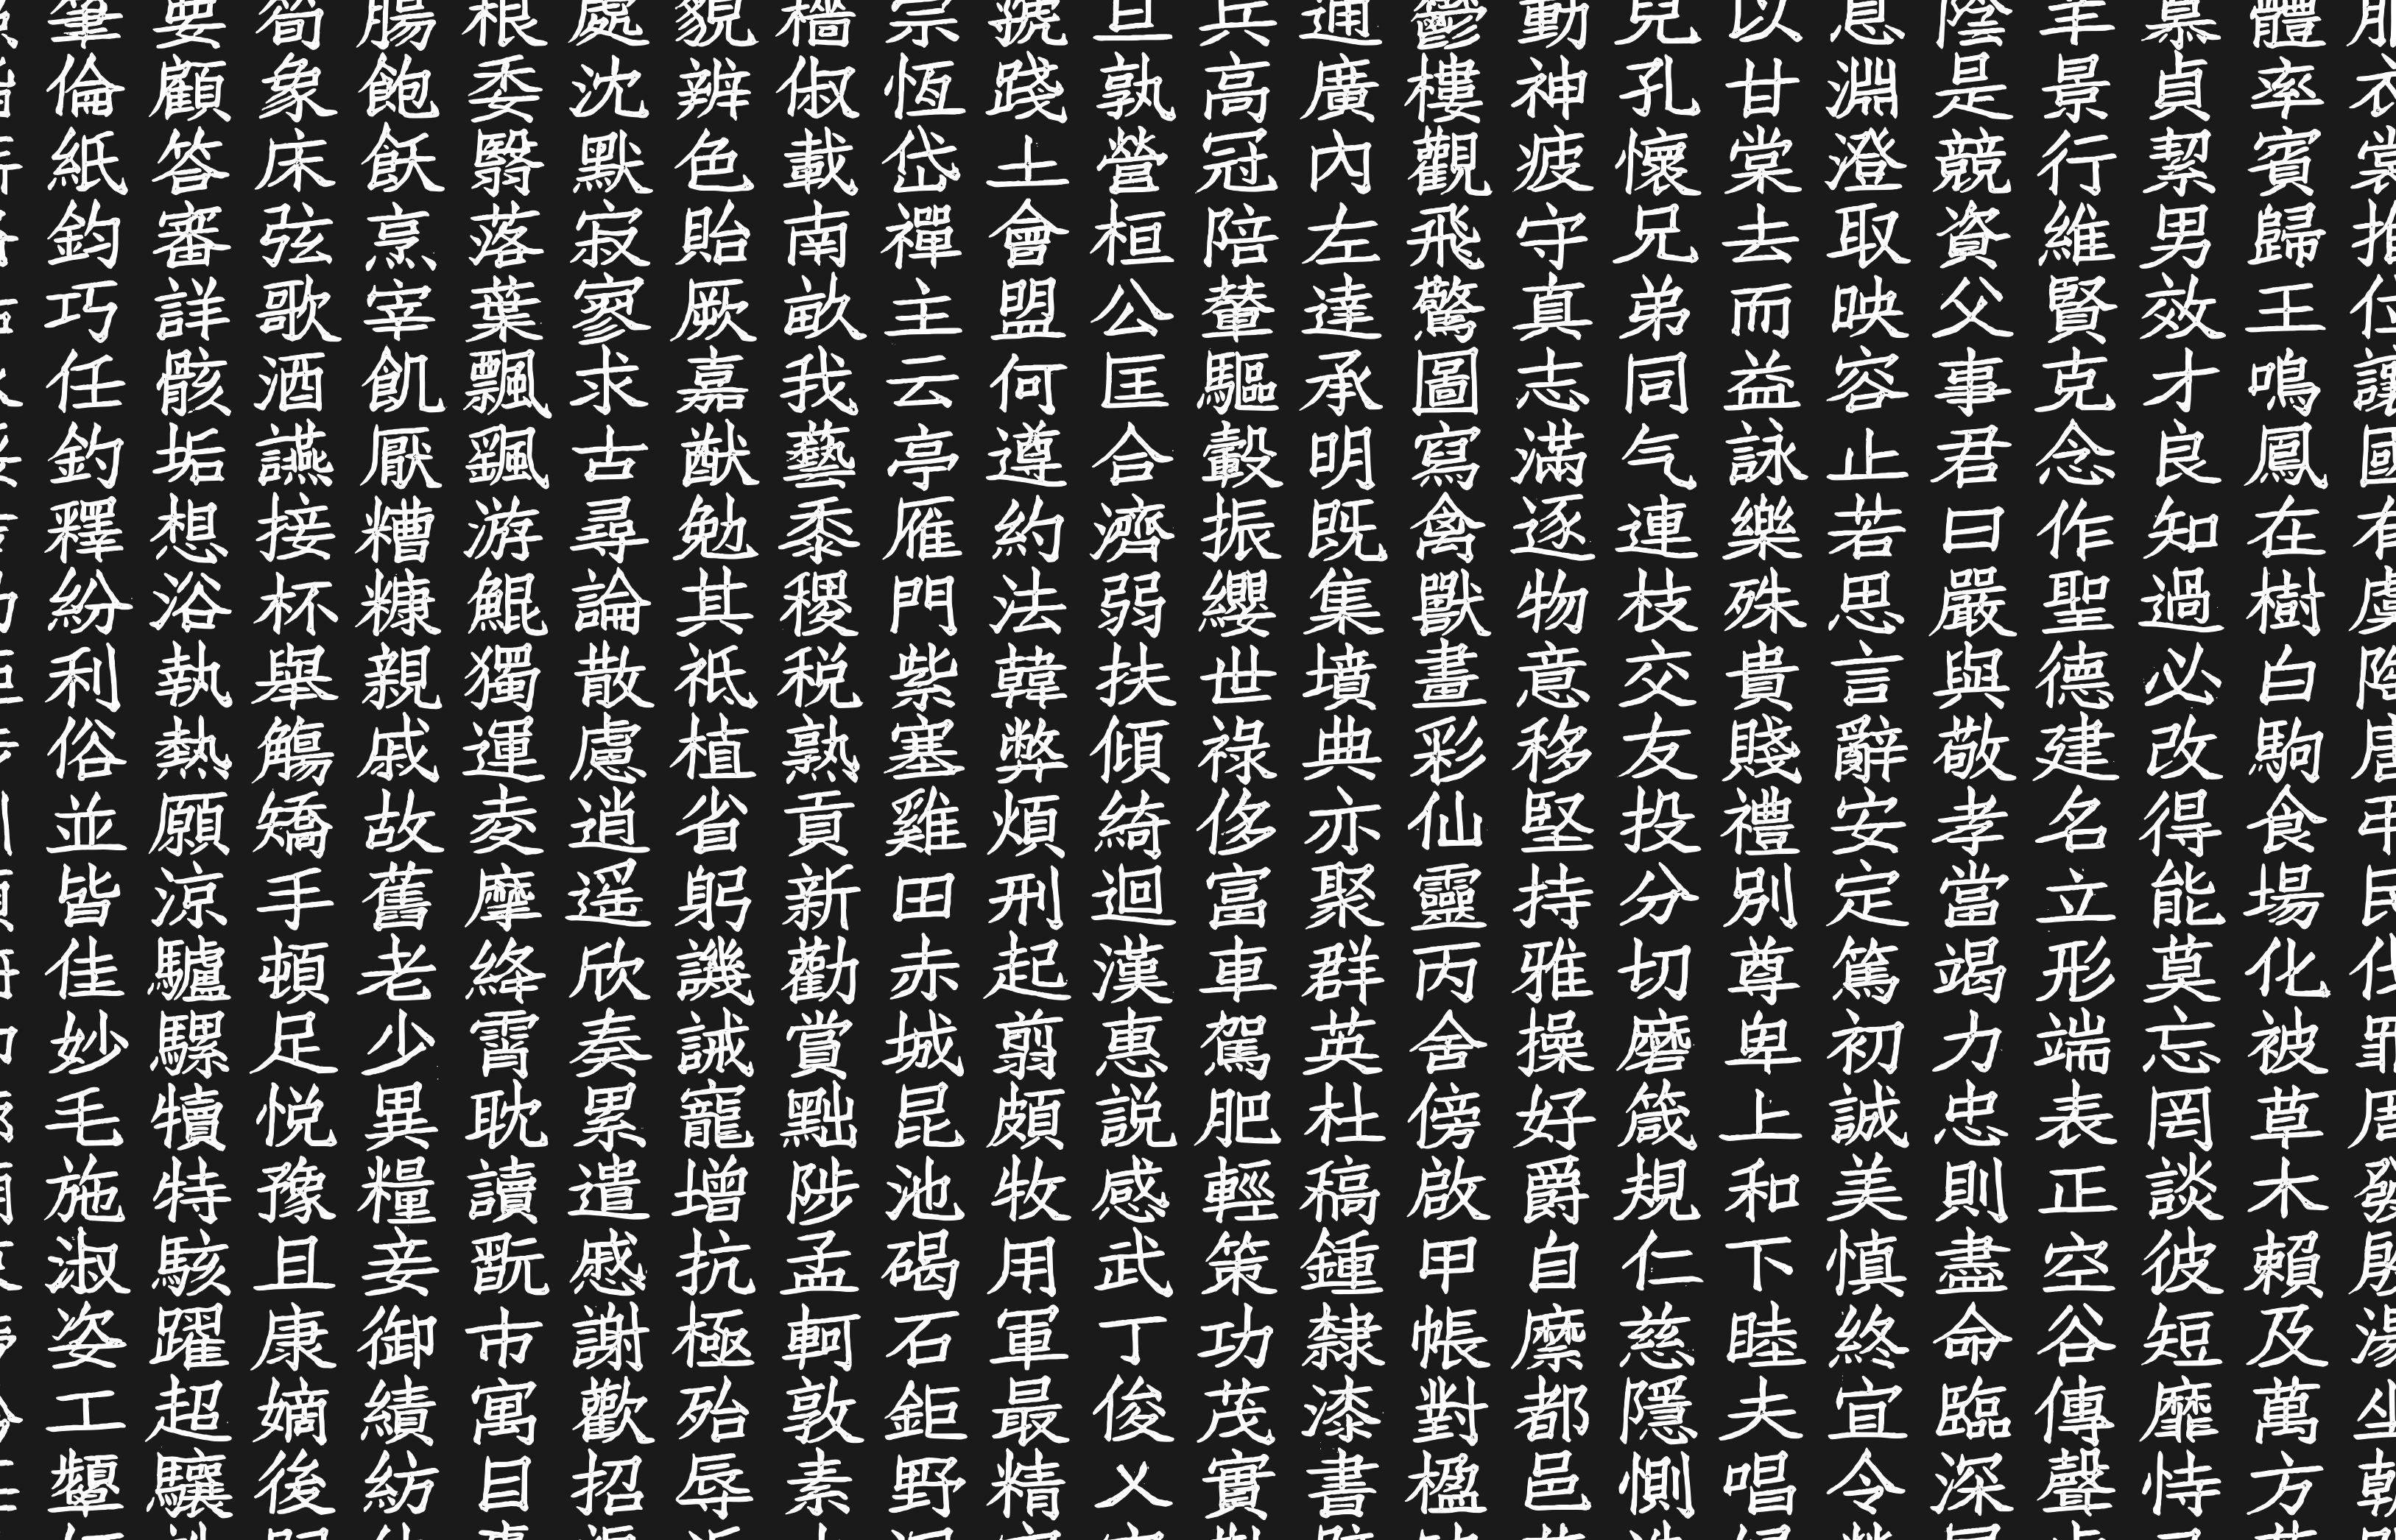 衣裳推位讓國有虞陶唐弔民伐罪周發殷湯坐朝
體率賓歸王鳴鳳在樹白駒食場化被草木賴及萬方
慕貞絜男效才良知過必改得能莫忘罔談彼短靡恃
羊景行維賢克念作聖德建名立形端表正空谷傳聲
陰是競資父事君曰嚴與敬孝當竭力忠則盡命臨深
息淵澄取映容止若思言辭安定篤初誠美慎終宜令
以甘棠去而益詠樂殊貴賤禮別尊卑上和下睦夫唱
兒孔懷兄弟同气連枝交友投分切磨箴規仁慈隱惻
動神疲守真志滿逐物意移堅持雅操好爵自縻都邑
鬱樓觀飛驚圖寫禽獸畫彩仙靈丙舍傍啟甲帳對楹
通廣內左達承明既集墳典亦聚群英杜稿鍾隸漆書
兵高冠陪輦驅轂振纓世祿侈富車駕肥輕策功茂實
旦孰營桓公匡合濟弱扶傾綺迴漢惠說感武丁俊乂
虢踐土會盟何遵約法韓弊煩刑起翦頗牧用軍最精
宗恆岱禪主云亭雁門紫塞雞田赤城昆池碣石鉅野
穡俶載南畝我藝黍稷税熟貢新勸賞黜陟孟軻敦素
貌辨色貽厥嘉猷勉其祗植省躬譏誡寵增抗極殆辱
處沈默寂寥求古尋論散慮逍遥欣奏累遣慼謝歡招
根委翳落葉飄颻游鯤獨運凌摩絳霄耽讀翫市寓目
腸飽飫烹宰飢厭糟糠親戚故舊老少異糧妾御績紡
筍象床弦歌酒讌接杯舉觴矯手頓足悅豫且康嫡後
要顧答審詳骸垢想浴執熱願涼驢騾犢特駭躍超驤
筆倫紙鈞巧任釣釋紛利俗並皆佳妙毛施淑姿工顰